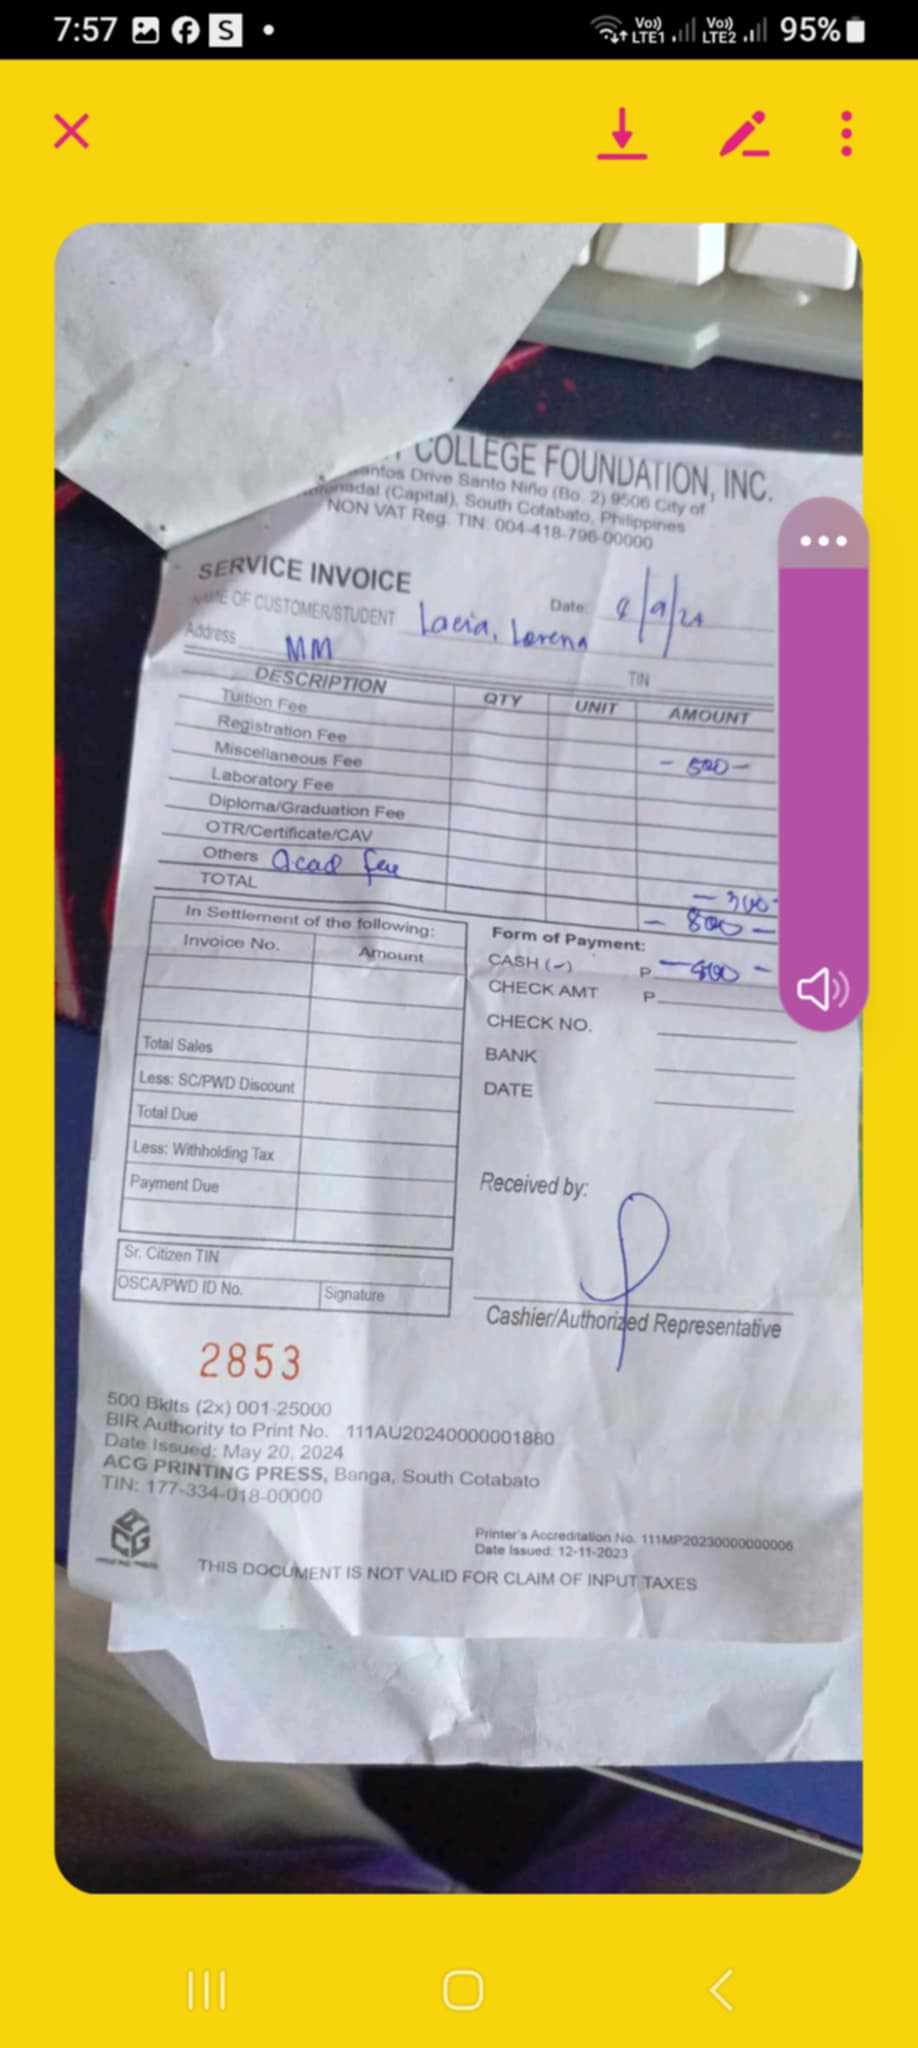 7:57 S VoI) LTE1 VoI) LTE2 95%
COLLEGE FOUNDATION, INC.
Santos Drive Santo Niño (Bo. 2) 9506 City of
(Capital), South Cotabato, Philippines
NON VAT Reg. TIN: 004-418-796-00000
SERVICE INVOICE
Date: 8/9/24
NAME OF CUSTOMER/STUDENT Lacia, Lorena
Address MM
TIN
DESCRIPTION QTY UNIT AMOUNT
Tuition Fee
Registration Fee - 500 -
Miscellaneous Fee
Laboratory Fee
Diploma/Graduation Fee
OTR/Certificate/CAV
Others acad fee - 300 -
TOTAL - 800 -
In Settlement of the following:
Invoice No. Amount
Total Sales
Less: SC/PWD Discount
Total Due
Less: Withholding Tax
Payment Due
Sr. Citizen TIN
OSCA/PWD ID No. Signature
Form of Payment:
CASH (-) P - 800 -
CHECK AMT P
CHECK NO.
BANK
DATE
Received by:
Cashier/Authorized Representative
2853
500 Bklts (2x) 001-25000
BIR Authority to Print No. 111AU20240000001880
Date Issued: May 20, 2024
ACG PRINTING PRESS, Banga, South Cotabato
TIN: 177-334-018-00000
ACG
Printer's Accreditation No. 111MP20230000000006
Date Issued: 12-11-2023
THIS DOCUMENT IS NOT VALID FOR CLAIM OF INPUT TAXES